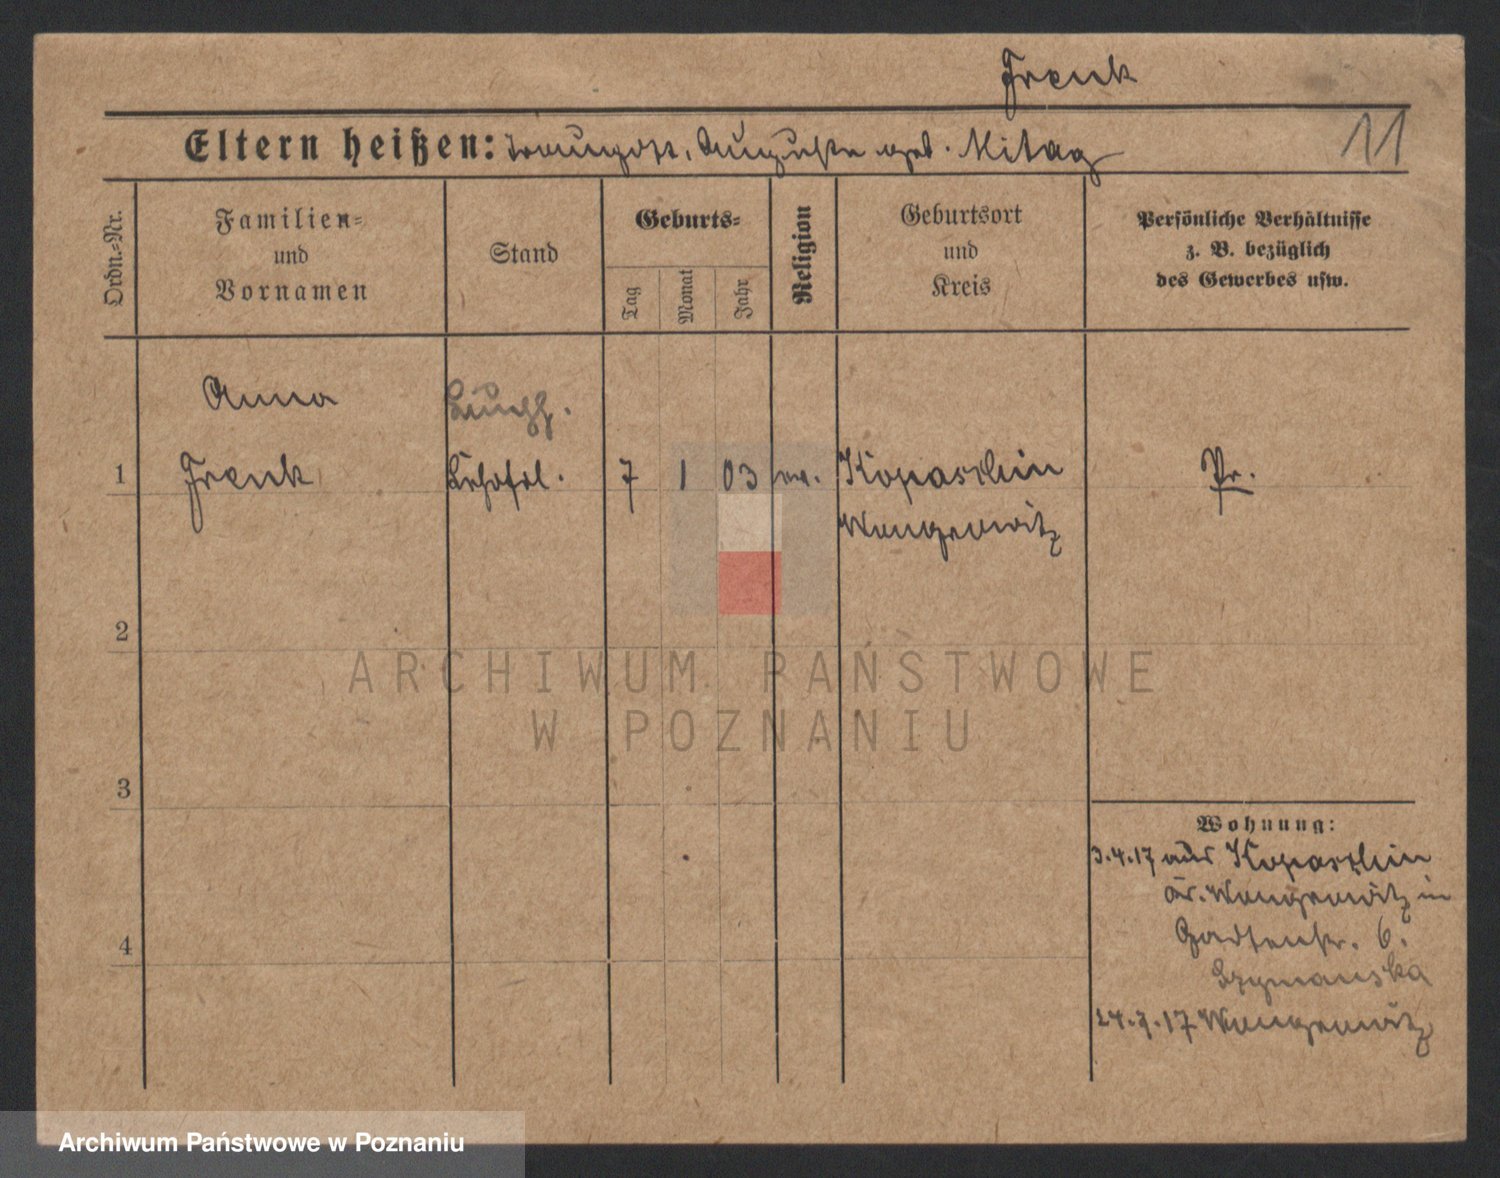 Frenk
Eltern heißen: Traugott, Auguste geb. Mitag
11
Ordn.-Nr.
Familien- und Vornamen
Stand
Geburts-
Tag
Monat
Jahr
Religion
Geburtsort und Kreis
Persönliche Verhältnisse z. B. bezüglich des Gewerbes usw.
Anna
1 Frenk 7 1 03 ev. Kopaschin Pr.
Wongrowitz
2
3
4
Wohnung:
3.4.17 aus Kopaschin
Kr. Wongrowitz in
Gartenstr. 6.
Szymanska
24.7.17 Wongrowitz
ARCHIWUM PAŃSTWOWE
W POZNANIU
Archiwum Państwowe w Poznaniu